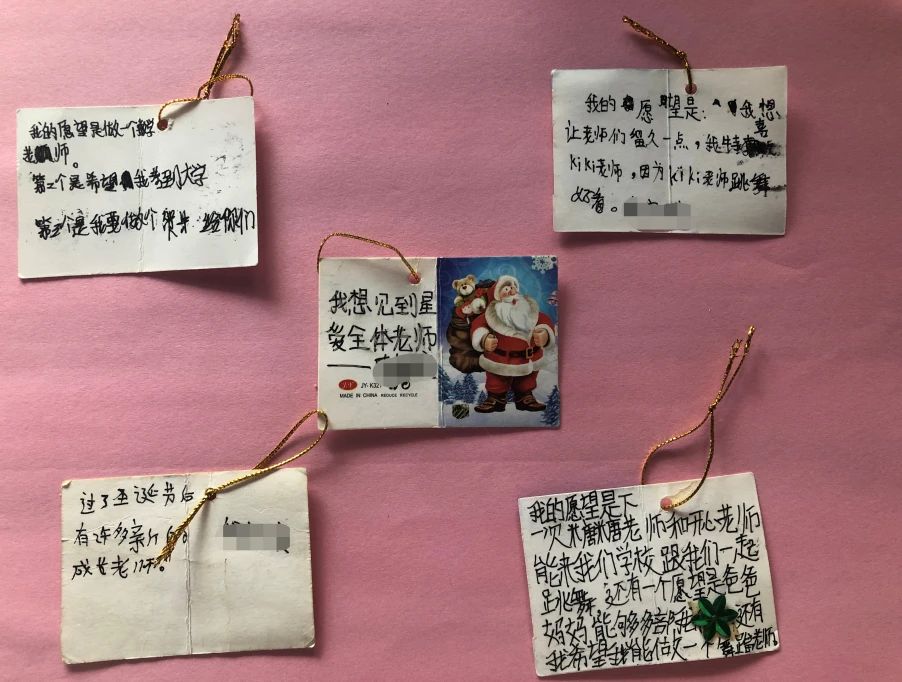 我的愿望是做一个教学
老师。
第二个是希望我考到大学
第三个是我要做个贺卡 给你们
我的愿望是:我想
让老师们留久一点,我特喜
kiki老师,因为kiki老师跳舞
好看。
我想见到星
爱全体老师
JY-K327
MADE IN CHINA REDUCE RECYCLE
过了圣诞节后
有许多新的
成长老师。
我的愿望是下
一次米糖糖老师和开心老师
能来我们学校跟我们一起
跳舞,还有一个愿望是爸爸
妈妈能够多多陪我 还有
我希望我能做一个舞蹈老师